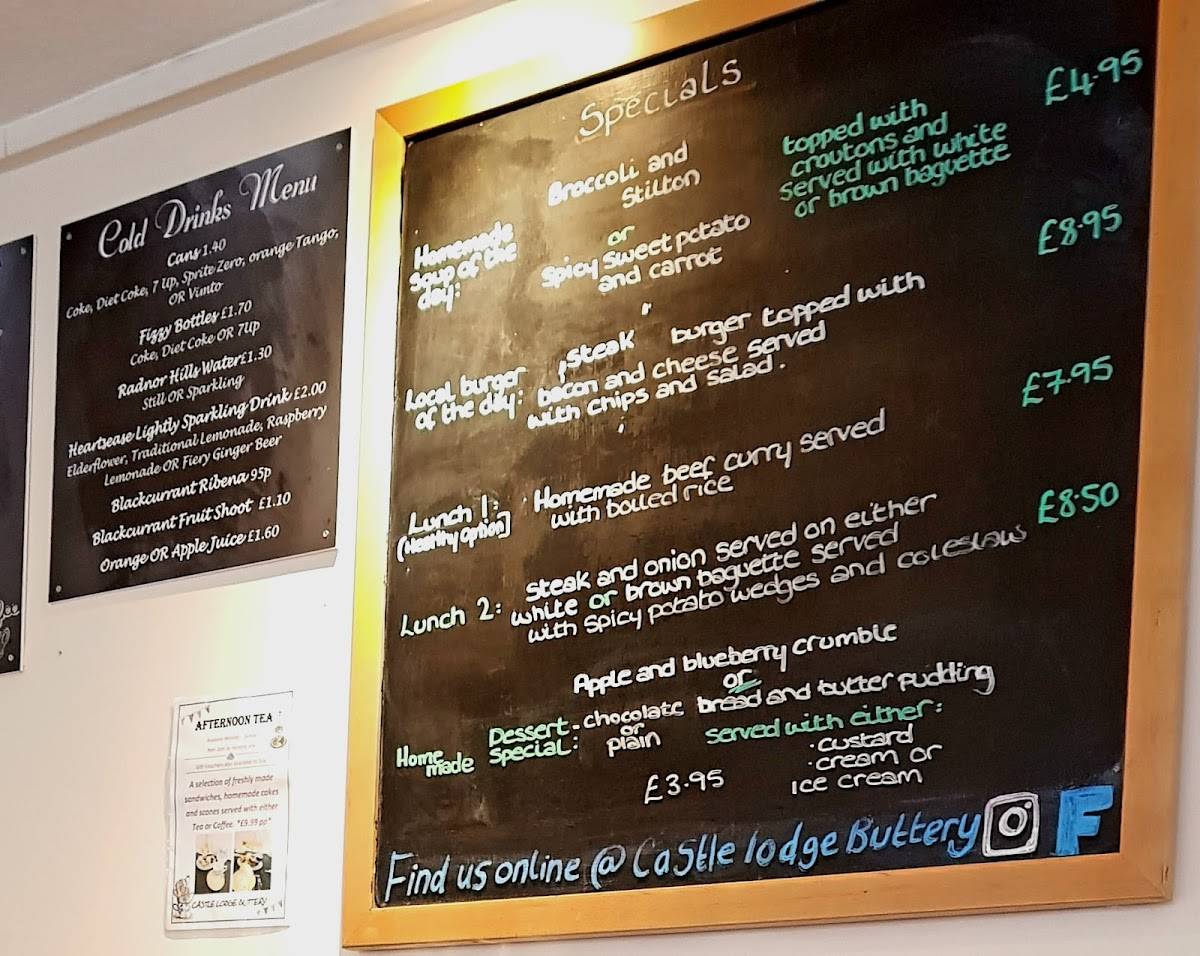 Cold Drinks Menu
Cans 1.40
Coke, Diet Coke, 7 Up, Sprite Zero, orange Tango,
OR Vimto
Fizzy Bottles £1.70
Coke, Diet Coke OR 7Up
Radnor Hills Water £1.30
Still OR Sparkling
Heartsease Lightly Sparkling Drink £2.00
Elderflower, Traditional Lemonade, Raspberry
Lemonade OR Fiery Ginger Beer
Blackcurrant Ribena 95p
Blackcurrant Fruit Shoot £1.10
Orange OR Apple Juice £1.60
AFTERNOON TEA
A selection of freshly made
sandwiches, homemade cakes
and scones served with either
Tea or Coffee. *£9.99 pp*
CASTLE LODGE BUTTERY
Specials
Homemade
Soup of the
day:
Broccoli and
Stilton
or
Spicy sweet potato
and carrot
topped with
croutons and
served with white
or brown baguette
£4.95
Local burger
of the day:
Steak burger topped with
bacon and cheese served
with chips and salad.
£8.95
Lunch 1:
(Healthy Option]
Homemade beef curry served
with boiled rice
£7.95
Lunch 2:
Steak and onion served on either
white or brown baguette served
with spicy potato wedges and coleslaw
£8.50
Home
made
Dessert
Special:
Apple and blueberry crumble
or
- chocolate bread and butter pudding
or
plain
served with either:
· custard
· cream or
ice cream
£3.95
Find us online @ Castle lodge Buttery
F